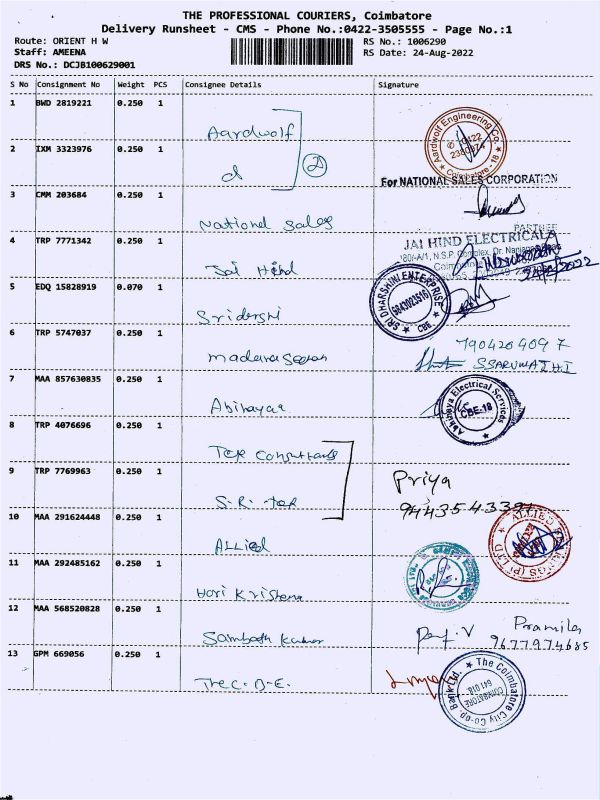 THE PROFESSIONAL COURIERS, Coimbatore
Delivery Runsheet - CMS - Phone No.:0422-3505555 - Page No.:1
Route: ORIENT H W RS No.: 1006290
Staff: AMEENA RS Date: 24-Aug-2022
DRS No.: DCJB100629001
S No Consignment No Weight PCS Consignee Details Signature
1 BWD 2819221 0.250 1
Aardwolf
Aardwolf Engineering Co. Coimbatore - 18
2 IXM 3323976 0.250 1
d 2
For NATIONAL SALES CORPORATION
3 CMM 203684 0.250 1
National Sales
PARTNER
4 TRP 7771342 0.250 1
JAI HIND ELECTRICALS
Jai Hind
5 EDQ 15828919 0.070 1
SRI DHARSHINI ENTERPRISE 6843023516 CBE
Sridarshi
6 TRP 5747037 0.250 1
7904204097
SSARUMATHI
7 MAA 857630835 0.250 1
Abinayaa
Abhinaya Electrical Services CBE-18
8 TRP 4076696 0.250 1
Tax Consultants
9 TRP 7769963 0.250 1
Priya
S.R. Tax
10 MAA 291624448 0.250 1
Allied
ALLIED
11 MAA 292485162 0.250 1
Hari Krishna
12 MAA 568520828 0.250 1
Sambath Kumar
Pramila
9677974685
13 GPM 669056 0.250 1
The C.B.E.
The Coimbatore City Co-op. Bank Ltd. COIMBATORE 641 018